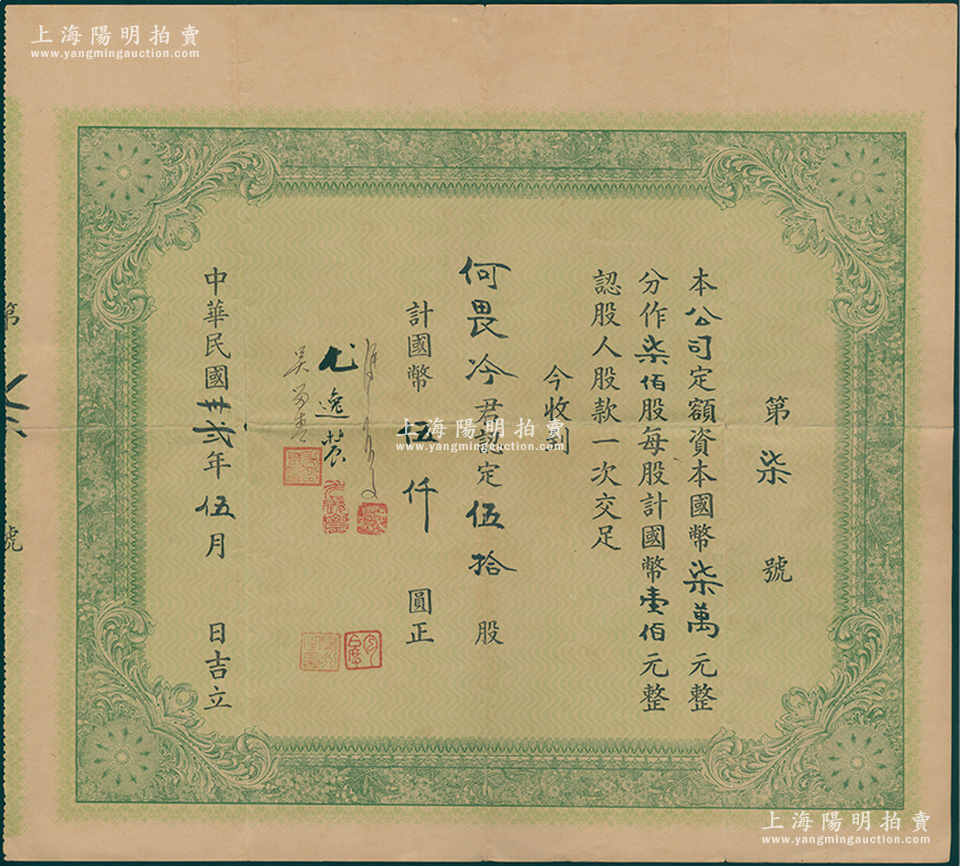 上海陽明拍賣
www.yangmingauction.com
第柒號
本公司定額資本國幣柒萬元整
分作柒佰股每股計國幣壹佰元整
認股人股款一次交足
今收到
何畏冷君認定伍拾股
計國幣伍仟圓正
尤逸農
中華民國卅弍年伍月日吉立
第
號
上海陽明拍賣
www.yangmingauction.com
上海陽明拍賣
www.yangmingauction.com